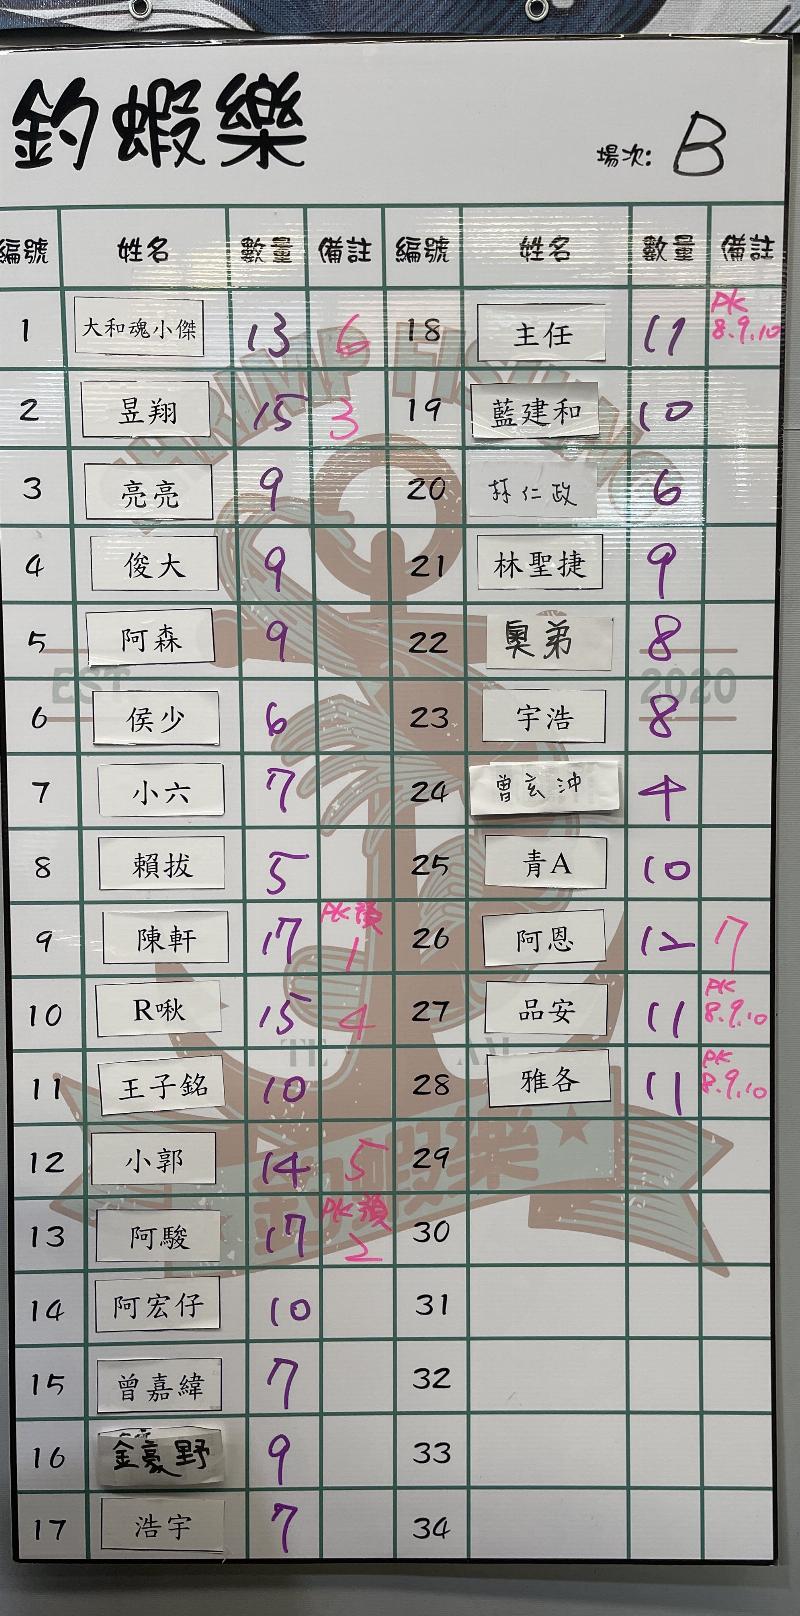 釣蝦樂
場次: B
編號 姓名 數量 備註 編號 姓名 數量 備註
1 大和魂小傑 13 6 18 主任 11 PK 8.9.10
2 昱翔 15 3 19 藍建和 10
3 亮亮 9 20 林仁政 6
4 俊大 9 21 林聖捷 9
5 阿森 9 22 奧弟 8
6 侯少 6 23 宇浩 8
7 小六 7 24 曾玄沖 4
8 賴拔 5 25 青A 10
9 陳軒 17 PK 1 26 阿恩 12 7
10 R啾 15 4 27 品安 11 PK 8.9.10
11 王子銘 10 28 雅各 11 PK 8.9.10
12 小郭 14 5 29
13 阿駿 17 PK 2 30
14 阿宏仔 10 31
15 曾嘉緯 7 32
16 金豪野 9 33
17 浩宇 7 34
SHRIMP FISHING
EST 2020
TEAM
釣蝦樂